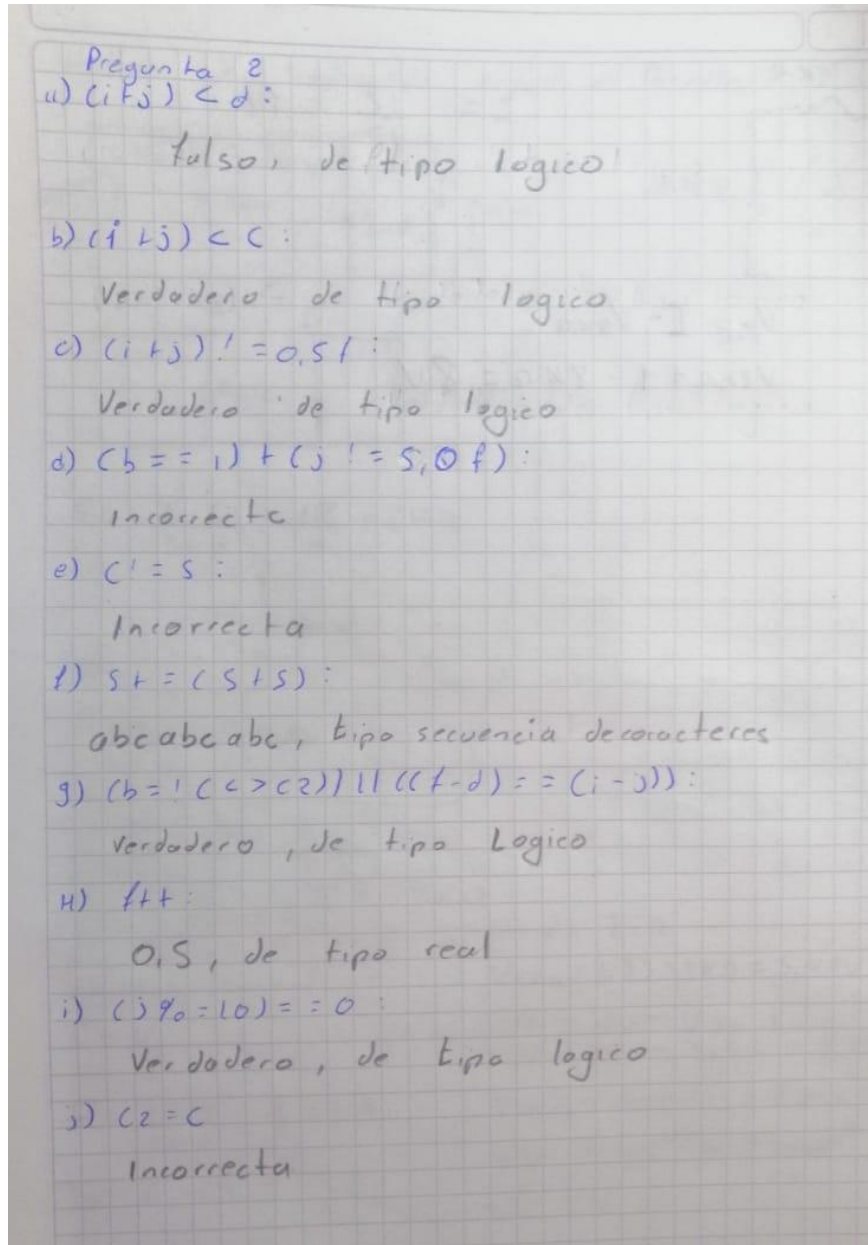 Pregunta 2
a) (i+j) < d:
falso, de tipo logico
b) (i +j) < c :
Verdadero de tipo logico
c) (i +j) != 0,5f :
Verdadero de tipo logico
d) (b == i) + (j != 5,0f) :
Incorrecta
e) c != s :
Incorrecta
f) s+ = (s+s) :
abcabcabc, tipo secuencia decaracteres
g) (b = ! (c > c2)) || ((f-d) == (i-j)):
Verdadero, de tipo Logico
H) f++:
0,5, de tipo real
i) (j %= 10) == 0 :
Verdadero, de tipo logico
j) c2 = c
Incorrecta